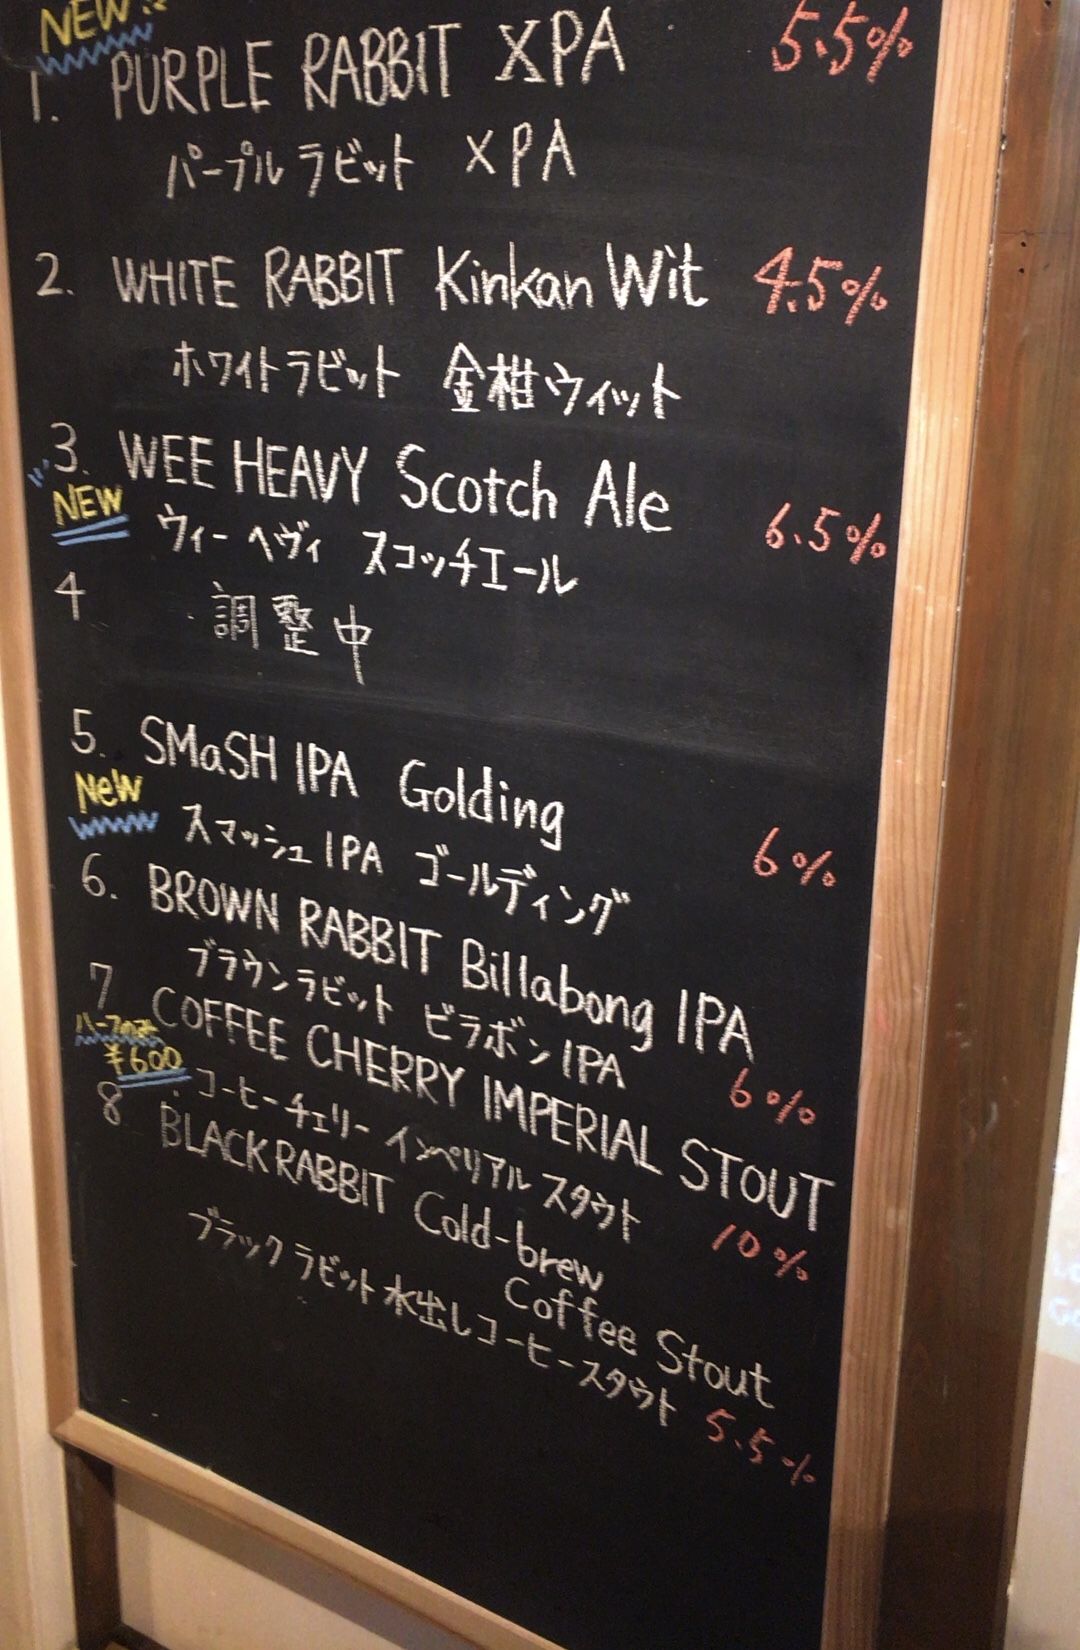 NEW!!
1. PURPLE RABBIT XPA 5.5%
パープルラビット XPA
2. WHITE RABBIT Kinkan Wit 4.5%
ホワイトラビット 金柑ウィット
3. WEE HEAVY Scotch Ale
NEW
ウィーヘヴィ スコッチエール 6.5%
4 調整中
5. SMaSH IPA Golding
New
スマッシュIPA ゴールディング 6%
6. BROWN RABBIT Billabong IPA
ブラウンラビット ビラボンIPA 6%
7 COFFEE CHERRY IMPERIAL STOUT
ハーフのみ
¥600
コーヒーチェリー インペリアル スタウト 10%
8 BLACK RABBIT Cold-brew
Coffee Stout
ブラックラビット水出しコーヒースタウト 5.5%